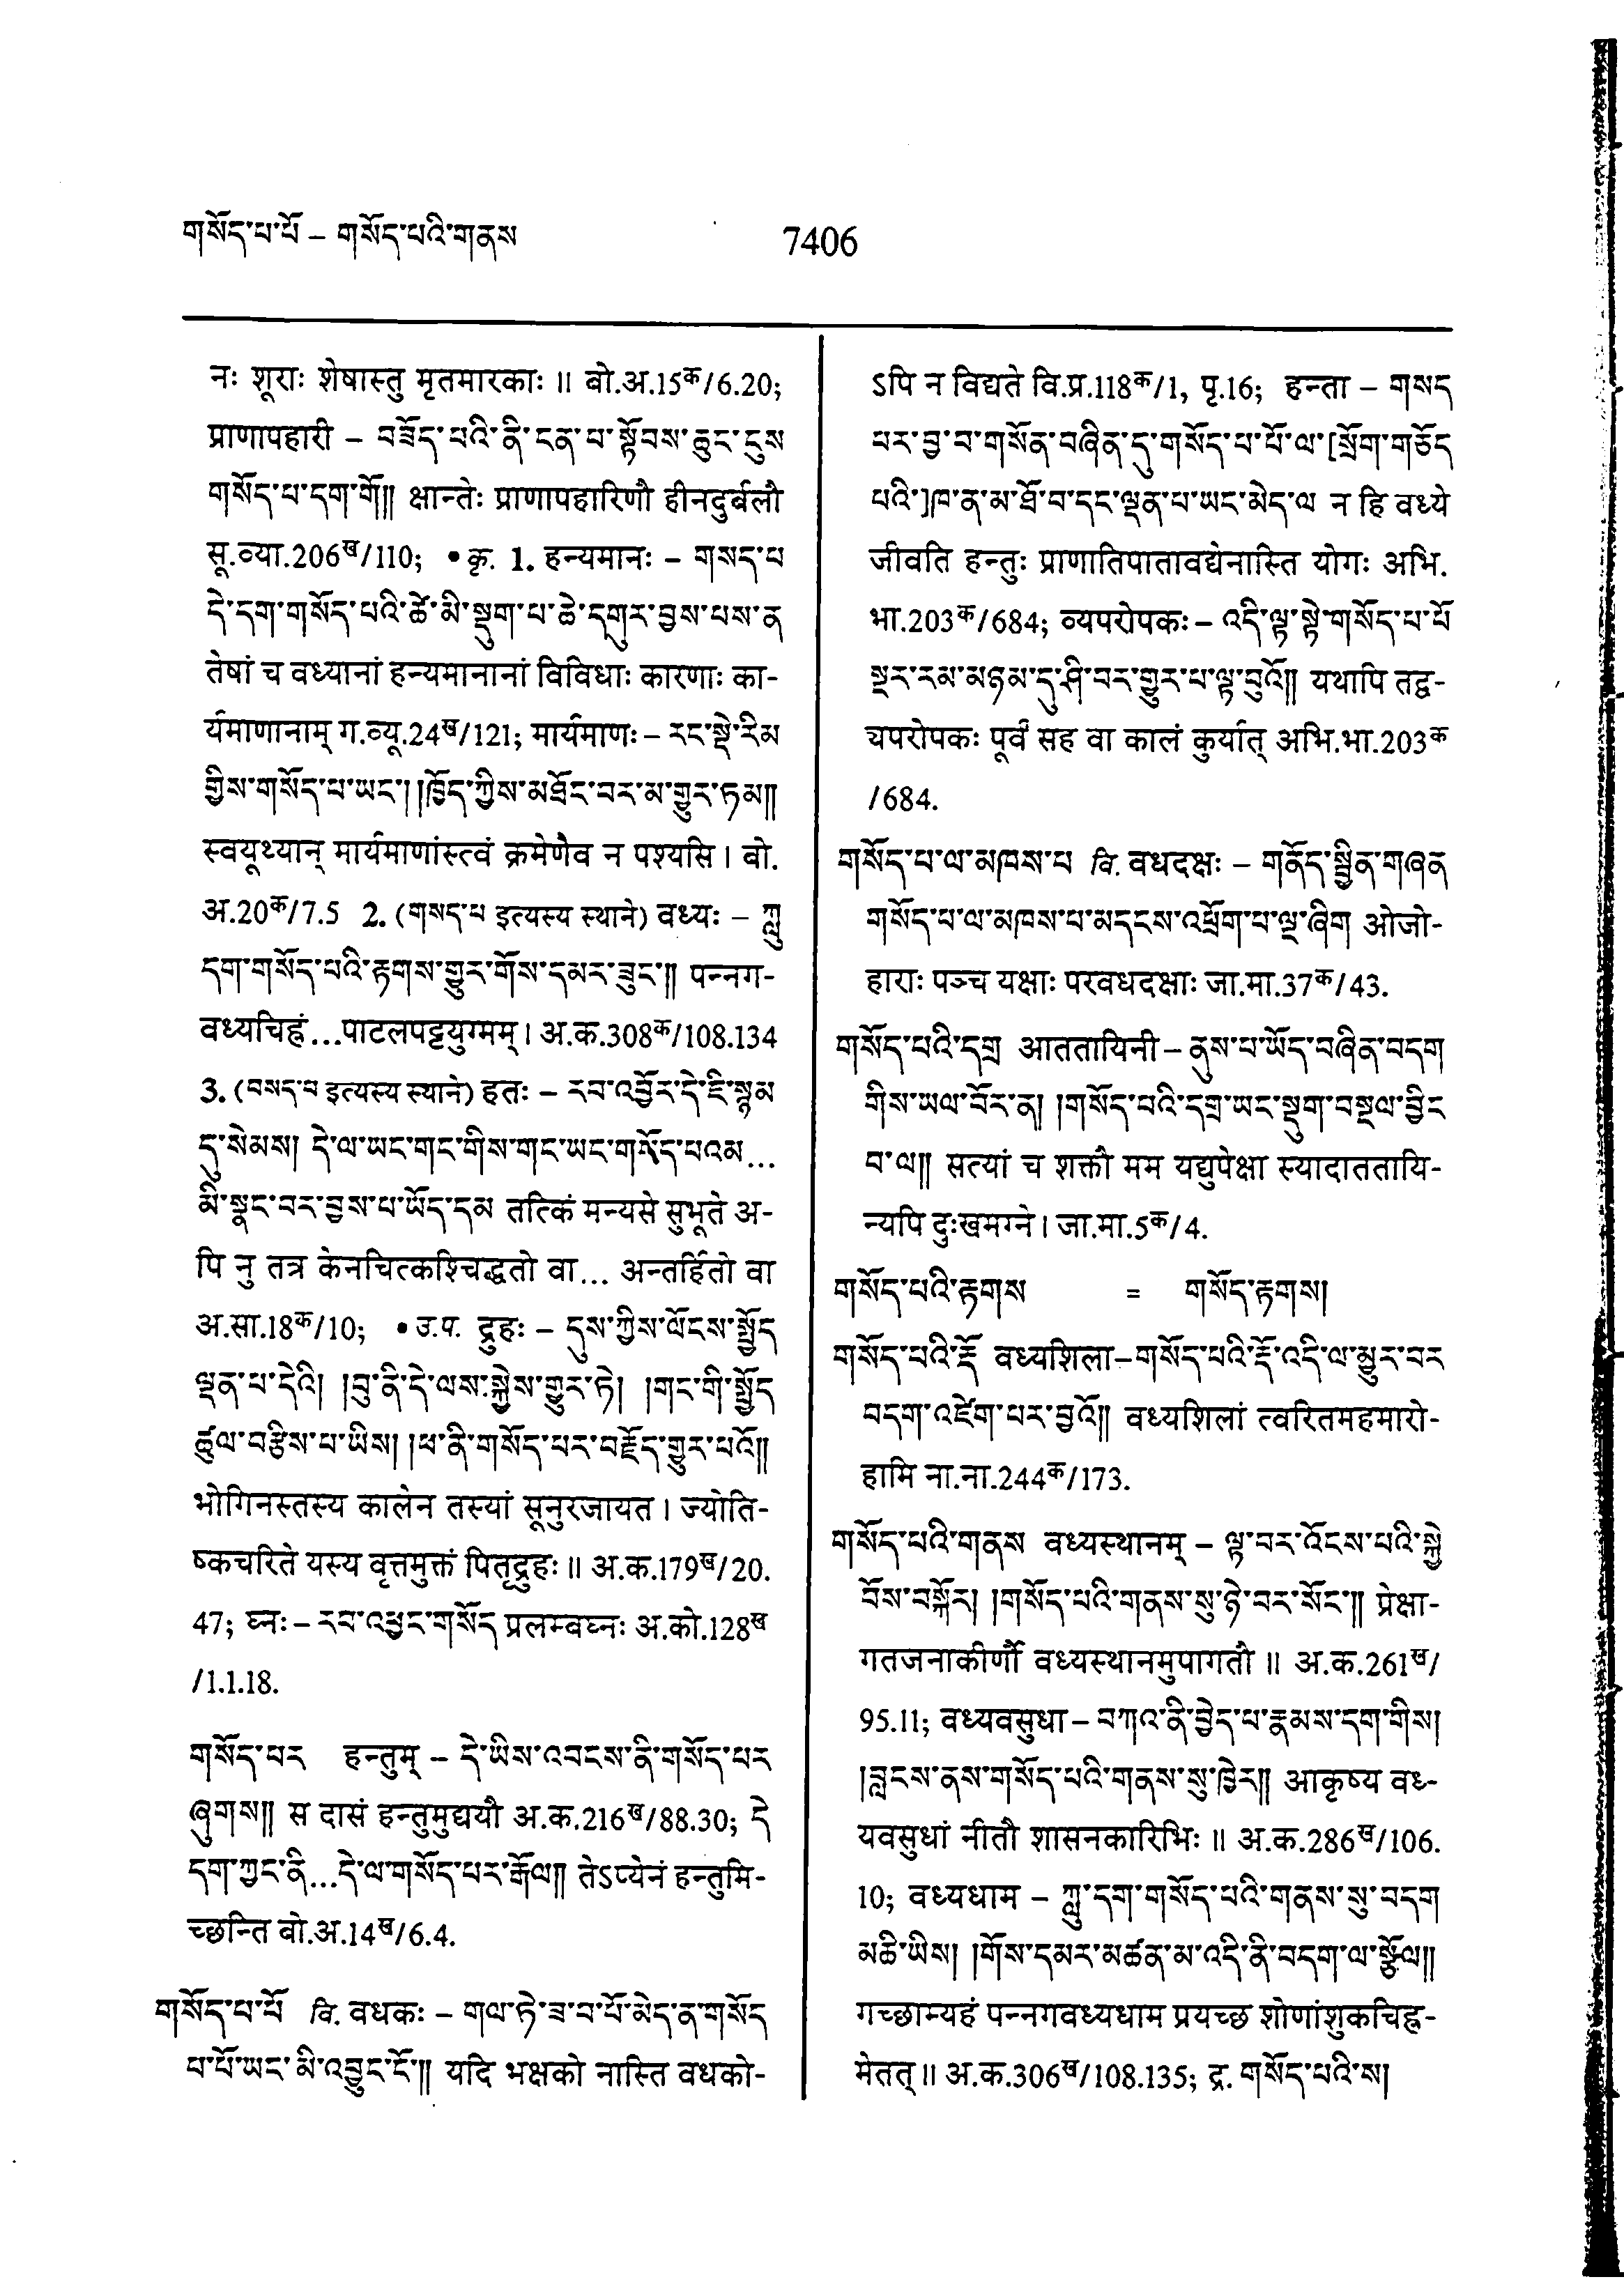 གསོད་པ་པོ – གསོད་པའི་གནས
7406
नः शूराः शेषास्तु मृतमारकाः ॥ बो.अ.15क/6.20;
प्राणापहारी – བཟོད་པའི་ནི་ངན་པ་སྟོབས་ཆུང་དུས
གསོད་པ་དག་གོ༎ क्षान्तेः प्राणापहारिणौ हीनदुर्बलौ
सू.व्या.206ख/110; • कृ. 1. हन्यमानः – གསད་པ
དེ་དག་གསོད་པའི་ཚེ་མི་སྡུག་པ་ཆེ་དགུར་བྱས་པས་ན
तेषां च वध्यानां हन्यमानानां विविधाः कारणाः का-
र्यमाणानाम् ग.व्यू.24ख/121; मार्यमाणः – རང་སྡེ་རིམ
གྱིས་གསོད་པ་ཡང་། །ཁྱོད་ཀྱིས་མཐོང་བར་མ་གྱུར་ཏམ༎
स्वयूथ्यान् मार्यमाणांस्त्वं क्रमेणैव न पश्यसि । बो.
अ.20क/7.5 2. (གསད་པ इत्यस्य स्थाने) वध्यः – ཀླུ
དག་གསོད་པའི་རྟགས་གྱུར་གོས་དམར་ཟུང་༎ पन्नग-
वध्यचिह्नं...पाटलपट्टयुग्मम् । अ.क.308क/108.134
3. (བསད་པ इत्यस्य स्थाने) हतः – རབ་འབྱོར་དེ་ཇི་སྙམ
དུ་སེམས། དེ་ལ་ཡང་གང་གིས་གང་ཡང་གསོད་པའམ...
མི་སྣང་བར་བྱས་པ་ཡོད་དམ तत्किं मन्यसे सुभूते अ-
पि नु तत्र केनचित्कश्चिद्धतो वा... अन्तर्हितो वा
अ.सा.18क/10; • उ.प. द्रुहः – དུས་ཀྱིས་ལོངས་སྤྱོད
ལྡན་པ་དེའི། །བུ་ནི་དེ་ལས་སྐྱེས་གྱུར་ཏེ། །གང་གི་སྤྱོད
ཚུལ་བརྩིས་པ་ཡིས། །ཕ་ནི་གསོད་པར་བརྗོད་གྱུར་པའོ༎
भोगिनस्तस्य कालेन तस्यां सूनुरजायत । ज्योति-
ष्कचरिते यस्य वृत्तमुक्तं पितृद्रुहः ॥ अ.क.179ख/20.
47; घ्नः – རབ་འཕྱང་གསོད प्रलम्बघ्नः अ.को.128ख
/1.1.18.
གསོད་པར हन्तुम् – དེ་ཡིས་འབངས་ནི་གསོད་པར
ཞུགས༎ स दासं हन्तुमुद्ययौ अ.क.216ख/88.30; དེ
དག་ཀྱང་ནི...དེ་ལ་གསོད་པར་རྒོལ༎ तेऽप्येनं हन्तुमि-
च्छन्ति बो.अ.14ख/6.4.
གསོད་པ་པོ वि. वधकः – གལ་ཏེ་ཟ་བ་པོ་མེད་ན་གསོད
པ་པོ་ཡང་མི་འབྱུང་ངོ་༎ यदि भक्षको नास्ति वधको-
ऽपि न विद्यते वि.प्र.118क/1, पृ.16; हन्ता – གསད
པར་བྱ་བ་གསོན་བཞིན་དུ་གསོད་པ་པོ་ལ་[སྲོག་གཅོད
པའི་]ཁ་ན་མ་ཐོ་བ་དང་ལྡན་པ་ཡང་མེད་ལ न हि वध्ये
जीवति हन्तुः प्राणातिपातावद्येनास्ति योगः अभि.
भा.203क/684; व्यपरोपकः – འདི་ལྟ་སྟེ་གསོད་པ་པོ
སྔར་རམ་མཉམ་དུ་ཤི་བར་གྱུར་པ་ལྟ་བུའོ༎ यथापि तद्व-
्यपरोपकः पूर्वं सह वा कालं कुर्यात् अभि.भा.203क
/684.
གསོད་པ་ལ་མཁས་པ वि. वधदक्षः – གནོད་སྦྱིན་གཞན
གསོད་པ་ལ་མཁས་པ་མདངས་འཕྲོག་པ་ལྔ་ཞིག ओजो-
हाराः पञ्च यक्षाः परवधदक्षाः जा.मा.37क/43.
གསོད་པའི་དགྲ आततायिनी – ནུས་པ་ཡོད་བཞིན་བདག
གིས་ཡལ་བོར་ན། །གསོད་པའི་དགྲ་ཡང་སྡུག་བསྔལ་བྱིང
བ་ལ༎ सत्यां च शक्तौ मम यद्युपेक्षा स्यादाततायि-
न्यपि दुःखमग्ने । जा.मा.5क/4.
གསོད་པའི་རྟགས = གསོད་རྟགས།
གསོད་པའི་རྡོ वध्यशिला – གསོད་པའི་རྡོ་འདི་ལ་མྱུར་བར
བདག་འཛེག་པར་བྱའོ༎ वध्यशिलां त्वरितमहमारो-
हामि ना.ना.244क/173.
གསོད་པའི་གནས वध्यस्थानम् – ལྟ་བར་འོངས་པའི་སྐྱེ
བོས་བསྐོར། །གསོད་པའི་གནས་སུ་ཉེ་བར་སོང་༎ प्रेक्षा-
गतजनाकीर्णौ वध्यस्थानमुपागतौ ॥ अ.क.261ख/
95.11; वध्यवसुधा – བཀའ་ནི་བྱེད་པ་རྣམས་དག་གིས།
།བླངས་ནས་གསོད་པའི་གནས་སུ་ཁྲིད༎ आकृष्य वध-
्यवसुधां नीतौ शासनकारिभिः ॥ अ.क.286ख/106.
10; वध्यधाम – ཀླུ་དག་གསོད་པའི་གནས་སུ་བདག
མཆི་ཡིས། །གོས་དམར་མཚན་མ་འདི་ནི་བདག་ལ་སྩོལ༎
गच्छाम्यहं पन्नगवध्यधाम प्रयच्छ शोणांशुकचिह्न-
मेतत् ॥ अ.क.306ख/108.135; द्र. གསོད་པའི་ས།